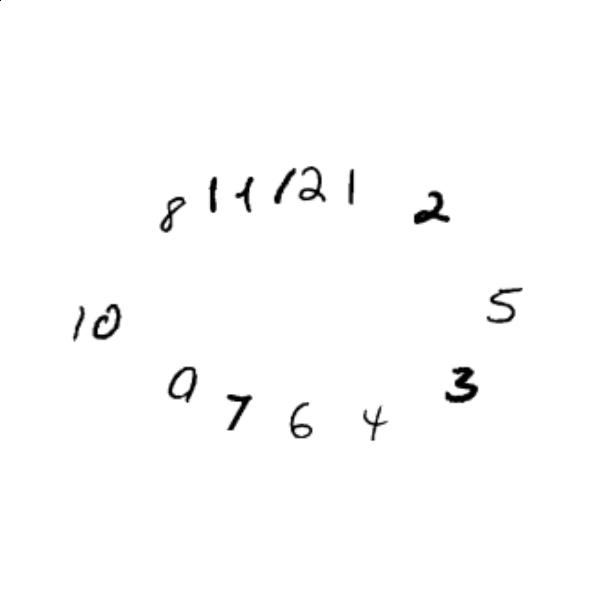 8 11 12 1 2
10 5
9 7 6 4 3